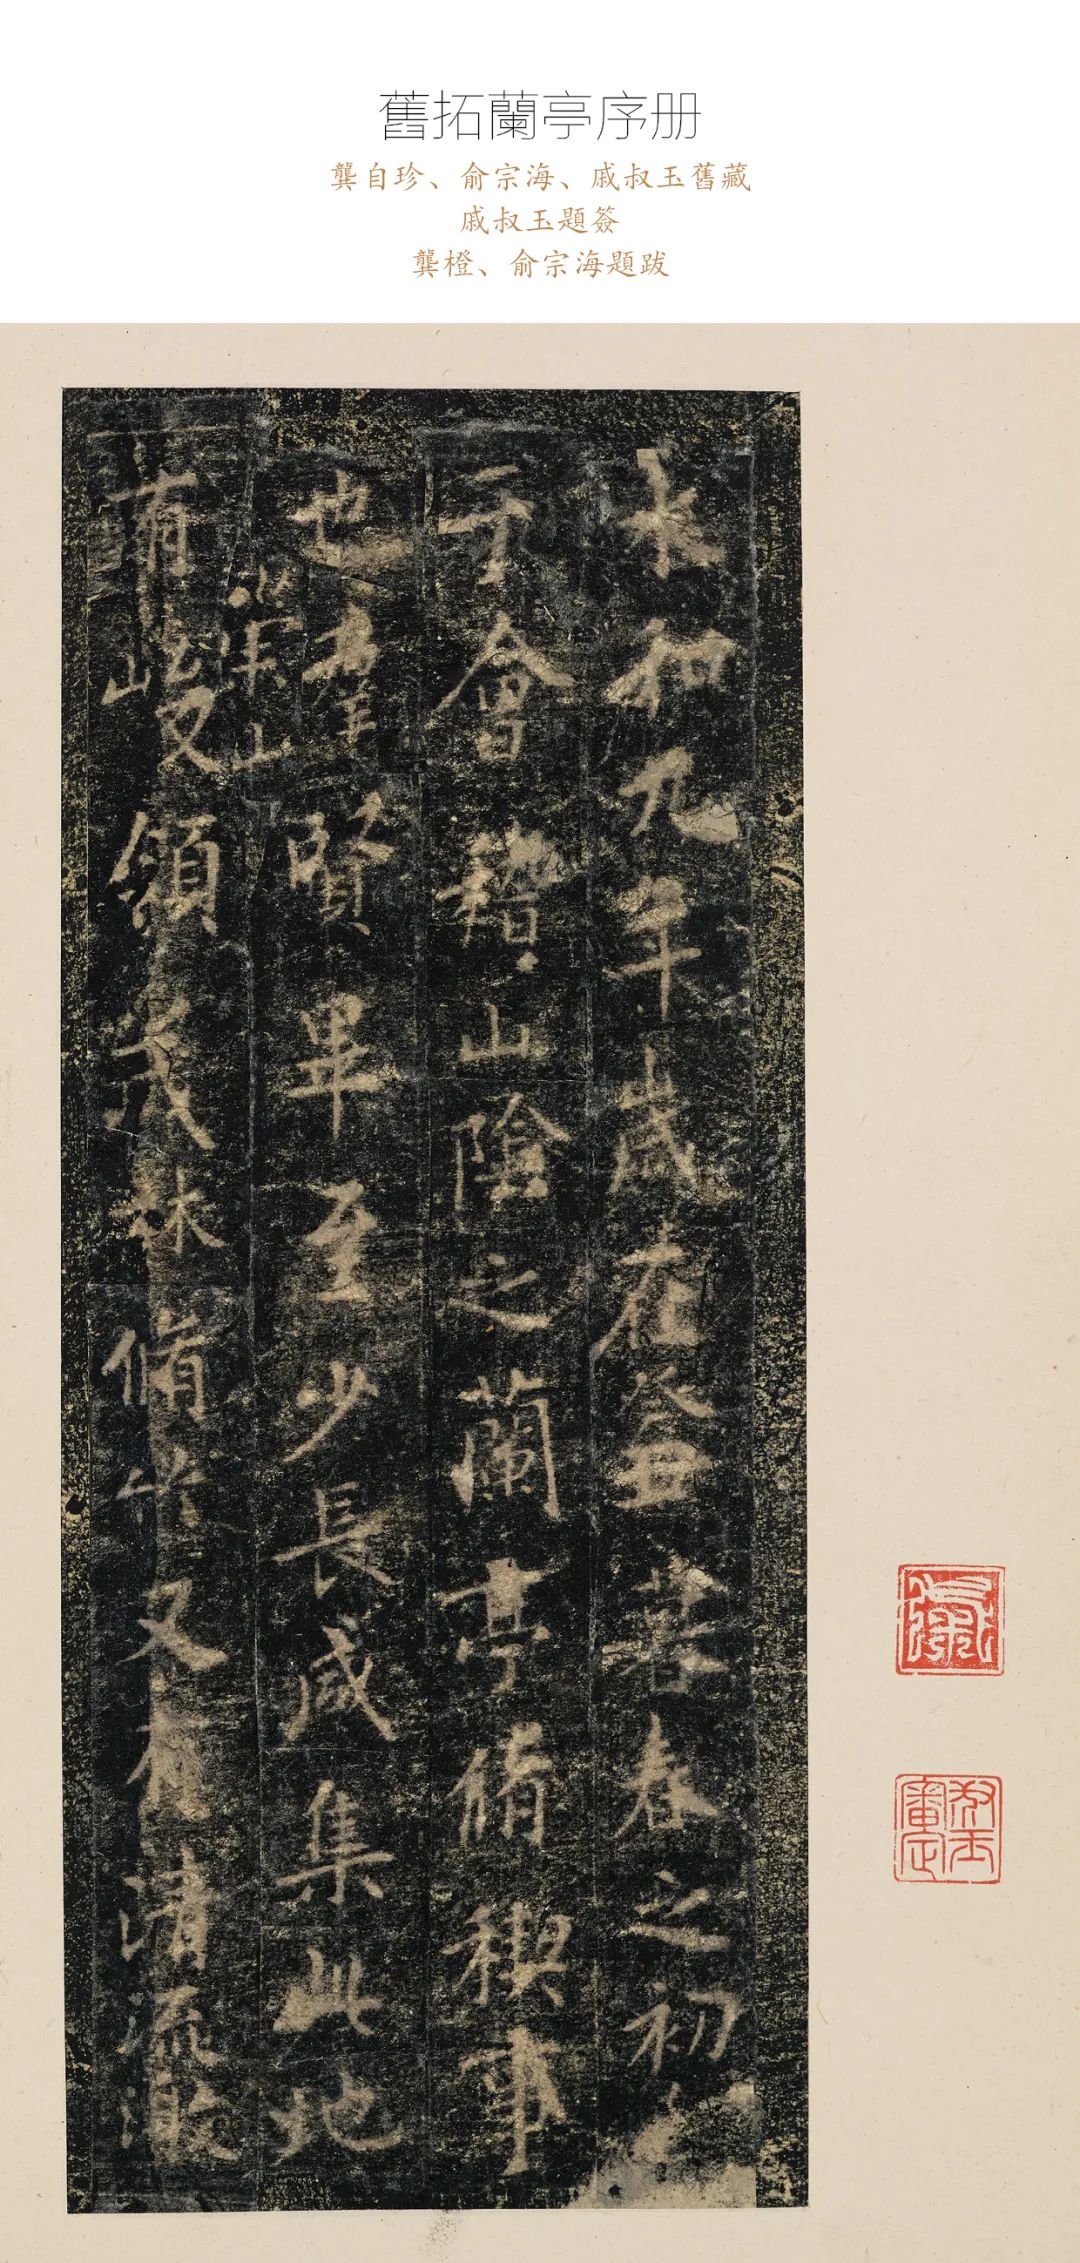 舊拓蘭亭序册
龔自珍、俞宗海、戚叔玉舊藏
戚叔玉題簽
龔橙、俞宗海題跋
永和九年歲在癸丑暮春之初
于會稽山陰之蘭亭脩稧事
也羣賢畢至少長咸集此地
崇山
有峻領茂林脩竹又有清流激
叔玉
審定